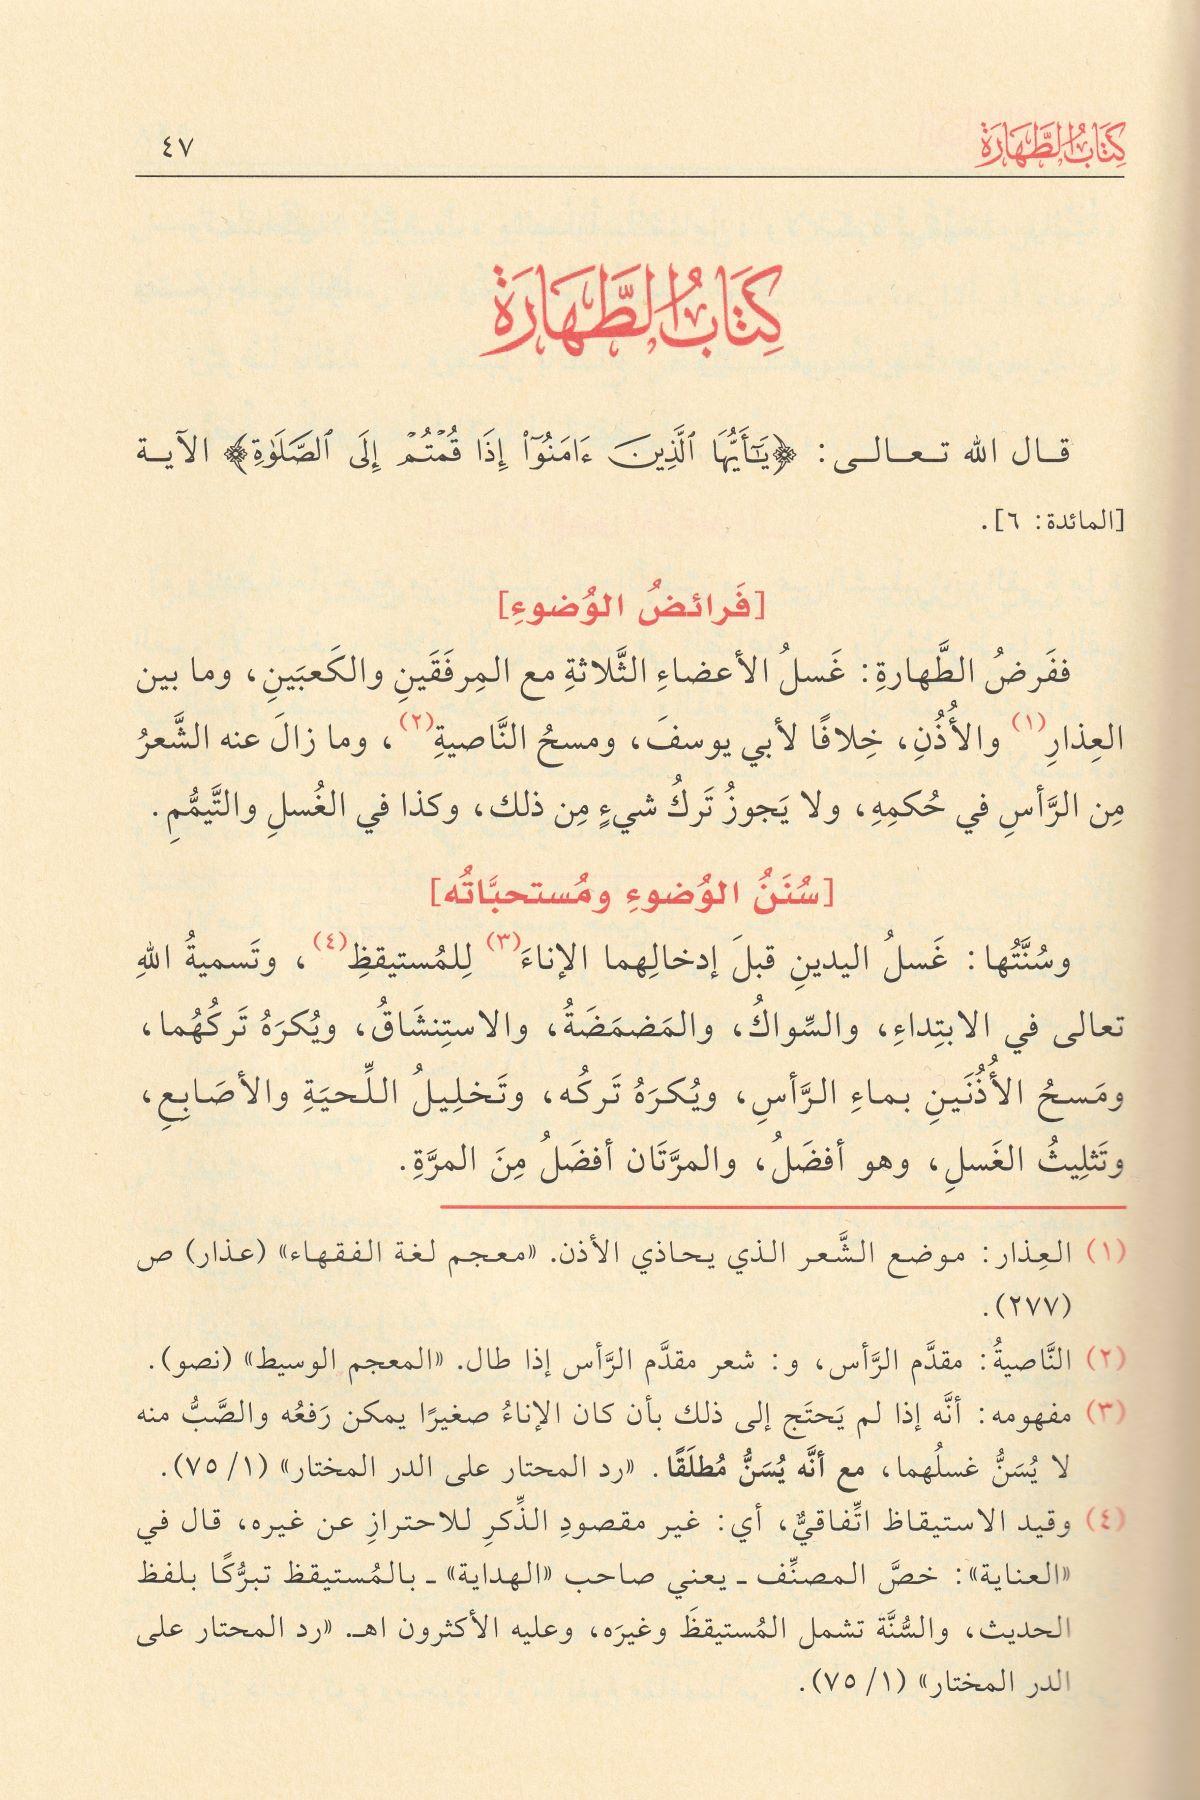 كِتَابُ الطَّهَارَة
٤٧
كِتَابُ الطَّهَارَة
قـال الله تـعـالـى: ﴿يَٰٓأَيُّهَا ٱلَّذِينَ ءَامَنُوٓا۟ إِذَا قُمْتُمْ إِلَى ٱلصَّلَوٰةِ﴾ الآيـة
[المائدة: ٦].
[فَرائضُ الوُضوءِ]
ففَرضُ الطَّهارةِ: غَسلُ الأعضاءِ الثَّلاثةِ مع المِرفَقَينِ والكَعبَينِ، وما بين
العِذارِ(١) والأُذُنِ، خِلافًا لأبي يوسفَ، ومسحُ النَّاصيةِ(٢)، وما زالَ عنه الشَّعرُ
مِن الرَّأسِ في حُكمِهِ، ولا يَجوزُ تَركُ شيءٍ مِن ذلك، وكذا في الغُسلِ والتَّيمُّمِ.
[سُنَنُ الوُضوءِ ومُستحبَّاتُه]
وسُنَّتُها: غَسلُ اليدينِ قبلَ إدخالِهما الإناءَ(٣) لِلمُستيقظِ(٤)، وتَسميةُ اللهِ
تعالى في الابتِداءِ، والسِّواكُ، والمَضمَضَةُ، والاستِنشَاقُ، ويُكرَهُ تَركُهُما،
ومَسحُ الأُذُنَينِ بماءِ الرَّأسِ، ويُكرَهُ تَركُه، وتَخلِيلُ اللِّحيَةِ والأصَابِعِ،
وتَثلِيثُ الغَسلِ، وهو أفضَلُ، والمرَّتَان أفضَلُ مِنَ المرَّةِ.
(١) العِذار: موضع الشَّعر الذي يحاذي الأذن. «معجم لغة الفقهاء» (عذار) ص
(٢٧٧).
(٢) النَّاصيةُ: مقدَّم الرَّأس، و: شعر مقدَّم الرَّأس إذا طال. «المعجم الوسيط» (نصو).
(٣) مفهومه: أنَّه إذا لم يَحتَج إلى ذلك بأن كان الإناءُ صغيرًا يمكن رَفعُه والصَّبُّ منه
لا يُسَنُّ غسلُهما، مع أنَّه يُسَنُّ مُطلَقًا. «رد المحتار على الدر المختار» (١/ ٧٥).
(٤) وقيد الاستيقاظ اتِّفاقيٌّ، أي: غير مقصودِ الذِّكرِ للاحترازِ عن غيره، قال في
«العناية»: خصَّ المصنِّف ـ يعني صاحب «الهداية» ـ بالمُستيقظ تبرُّكًا بلفظ
الحديث، والسُّنَّة تشمل المُستيقظَ وغيرَه، وعليه الأكثرون اهـ. «رد المحتار على
الدر المختار» (١/ ٧٥).